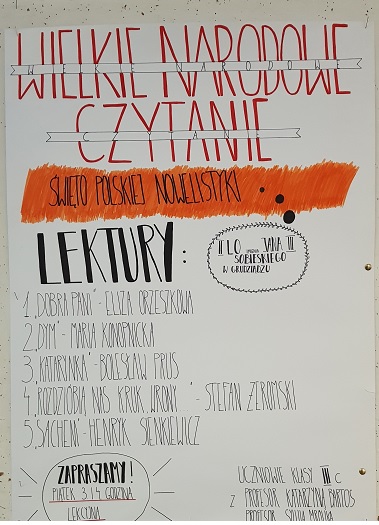 WIELKIE NARODOWE
WIELKIE NARODOWE
CZYTANIE
CZYTANIE
ŚWIĘTO POLSKIEJ NOWELISTYKI
LEKTURY:
II LO JANA III
SOBIESKIEGO
W GRUDZIĄDZU
1. „DOBRA PANI" - ELIZA ORZESZKOWA
2. „DYM" - MARIA KONOPNICKA
3. „KATARYNKA" - BOLESŁAW PRUS
4. „ROZDZIÓBIĄ NAS KRUKI, WRONY" - STEFAN ŻEROMSKI
5. „SACHEM" - HENRYK SIENKIEWICZ
ZAPRASZAMY!
PIĄTEK 3 I 4 GODZINA
LEKCYJNA
UCZNIOWIE KLASY III C
Z PROFESOR KATARZYNĄ BARTOS
PROFESOR SYLWIĄ